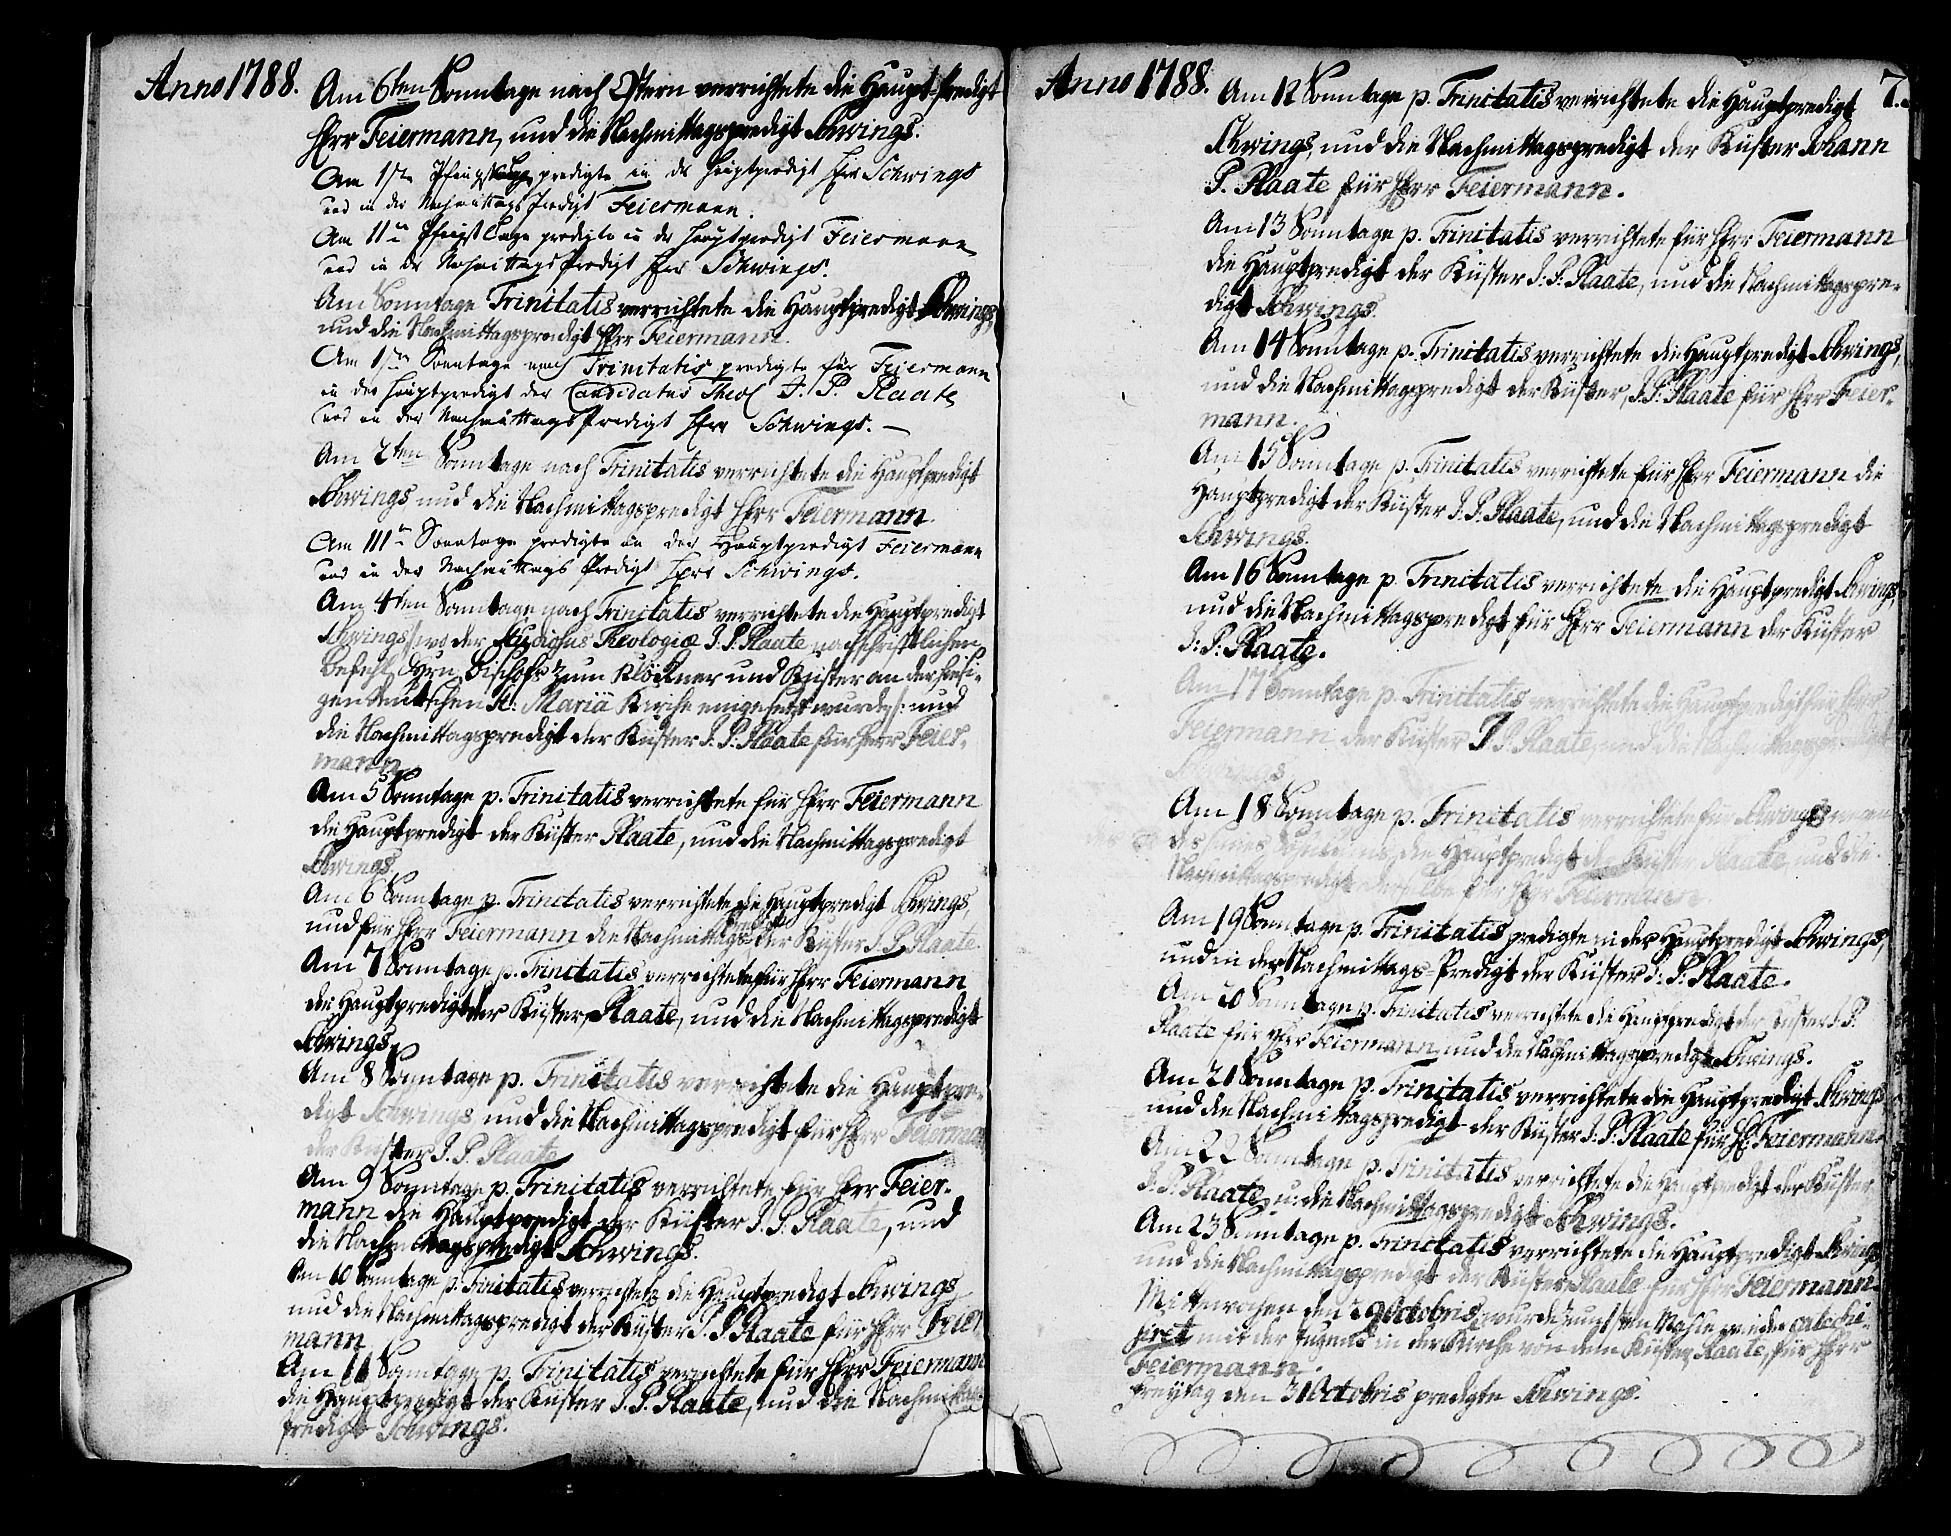 Anno 1788.
Am 6ten Sonntage nach Ostern verrichtete die Haupt-predigt
Herr Feiermann, und die Nachmittagspredigt Schwings.
Am 1ste Pfingsttage predigte in der Hauptpredigt Herr Schwings
und in der Nachmittags Predigt Feiermann.
Am IIte Pfingst Tage predigte in der Hauptpredigt Feiermann
und in der Nachmittags Predigt Herr Schwings.
Am Sonntage Trinitatis verrichtete die Hauptpredigt Schwings,
und die Nachmittagspredigt Herr Feiermann.
Am 1sten Sonntage nach Trinitatis predigte für Feiermann
in der Hauptpredigt der Candidatus Theol J. P. Plaate
und in der Nachmittags Predigt Herr Schwings. —
Am 2ten Sonntage nach Trinitatis verrichtete die Hauptpredigt
Schwings und die Nachmittagspredigt Herr Feiermann.
Am IIIte Sonntage predigte in der Hauptpredigt Feiermann
und in der Nachmittags Predigt Herr Schwings.
Am 4ten Sonntage nach Trinitatis verrichtete die Hauptpredigt
Schwings /: wo der Studiosus Theologiæ J. P. Plaate nach schriftlichen
Befehl Hrn Bischofs zum Klöckner und Küster an der hiesi-
gen deutschen St: Mariä Kirche eingesetzt wurde :/ und
die Nachmittagspredigt der Küster J. P. Plaate für Herr Feier-
mann.
Am 5 Sonntage p. Trinitatis verrichtete für Herr Feiermann
die Hauptpredigt der Küster Plaate, und die Nachmittagspredigt
Schwings.
Am 6 Sonntage p. Trinitatis verrichtete die Hauptpredigt Schwings,
und für Herr Feiermann die Nachmittags- der Küster J. P. Plaate.
Am 7 Sonntage p. Trinitatis verrichtete für Herr Feiermann
die Hauptpredigt der Küster Plaate, und die Nachmittagspredigt
Schwings.
Am 8 Sonntage p. Trinitatis verrichtete die Hauptpre-
digt Schwings und die Nachmittagspredigt für Herr Feiermann
der Küster J. P. Plaate.
Am 9 Sonntage p. Trinitatis verrichtete für Herr Feier-
mann die Hauptpredigt der Küster J. P. Plaate, und
die Nachmittagspredigt Schwings.
Am 10 Sonntage p. Trinitatis verrichtete die Hauptpredigt Schwings
und die Nachmittagspredigt der Küster J. P. Plaate für Herr Feier
mann
Am 11 Sonntage p. Trinitatis verrichtete für Herr Feiermann
die Hauptpredigt der Küster J. P. Plaate, und die Nachmittags-
predigt Schwings.
Anno 1788.
7.
Am 12 Sonntage p. Trinitatis verrichtete die Hauptpredigt
Schwings, und die Nachmittagspredigt der Küster Johann
P. Plaate für Herr Feiermann.
Am 13 Sonntage p. Trinitatis verrichtete für Herr Feiermann
die Hauptpredigt der Küster J. P. Plaate, und die Nachmittagspre-
digt Schwings.
Am 14 Sonntage p. Trinitatis verrichtete die Hauptpredigt Schwings,
und die Nachmittagspredigt der Küster, J. P. Plaate für Herr Feier-
mann.
Am 15 Sonntage p. Trinitatis verrichtete für Herr Feiermann die
Hauptpredigt der Küster J. P. Plaate, und die Nachmittagspredigt
Schwings.
Am 16 Sonntage p. Trinitatis verrichtete die Hauptpredigt Schwings,
und die Nachmittagspredigt für Herr Feiermann der Küster
J: P: Plaate.
Am 17 Sonntage p. Trinitatis verrichtete die Hauptpredigt für Herr
Feiermann der Küster J P. Plaate, und die Nachmittagspredigt
Schwings
Am 18 Sonntage p. Trinitatis verrichtete für Schwings
die Hauptpredigt der Küster Plaate, und die
Nachmittagspredigt derselbe für Herr Feiermann.
Am 19 Sonntage p. Trinitatis predigte in der Hauptpredigt Schwings,
und in der Nachmittags-Predigt der Küster J: P: Plaate.
Am 20 Sonntage p. Trinitatis verrichtete die Hauptpredigt der Küster J. P.
Plaate für Herr Feiermann, und die Nachmittagspredigt Schwings.
Am 21 Sonntage p. Trinitatis verrichtete die Hauptpredigt Schwings
und die Nachmittagspredigt der Küster J: P: Plaate für H: Feiermann.
Am 22 Sonntage p. Trinitatis verrichtete die Hauptpredigt der Küster
J. P. Plaate, u: die Nachmittagspredigt Schwings.
Am 23 Sonntage p. Trinitatis verrichtete die Hauptpredigt Schwings
und die Nachmittagspredigt der Küster Plaate für Herr Feiermann.
Mittewochen den 29 Octobris wurde zum sten Mahle wieder catechi-
siret mit der Jugend in der Kirche von dem Küster Plaate, für Herr
Feiermann.
Freytag den 31 Octobris predigte Schwings.